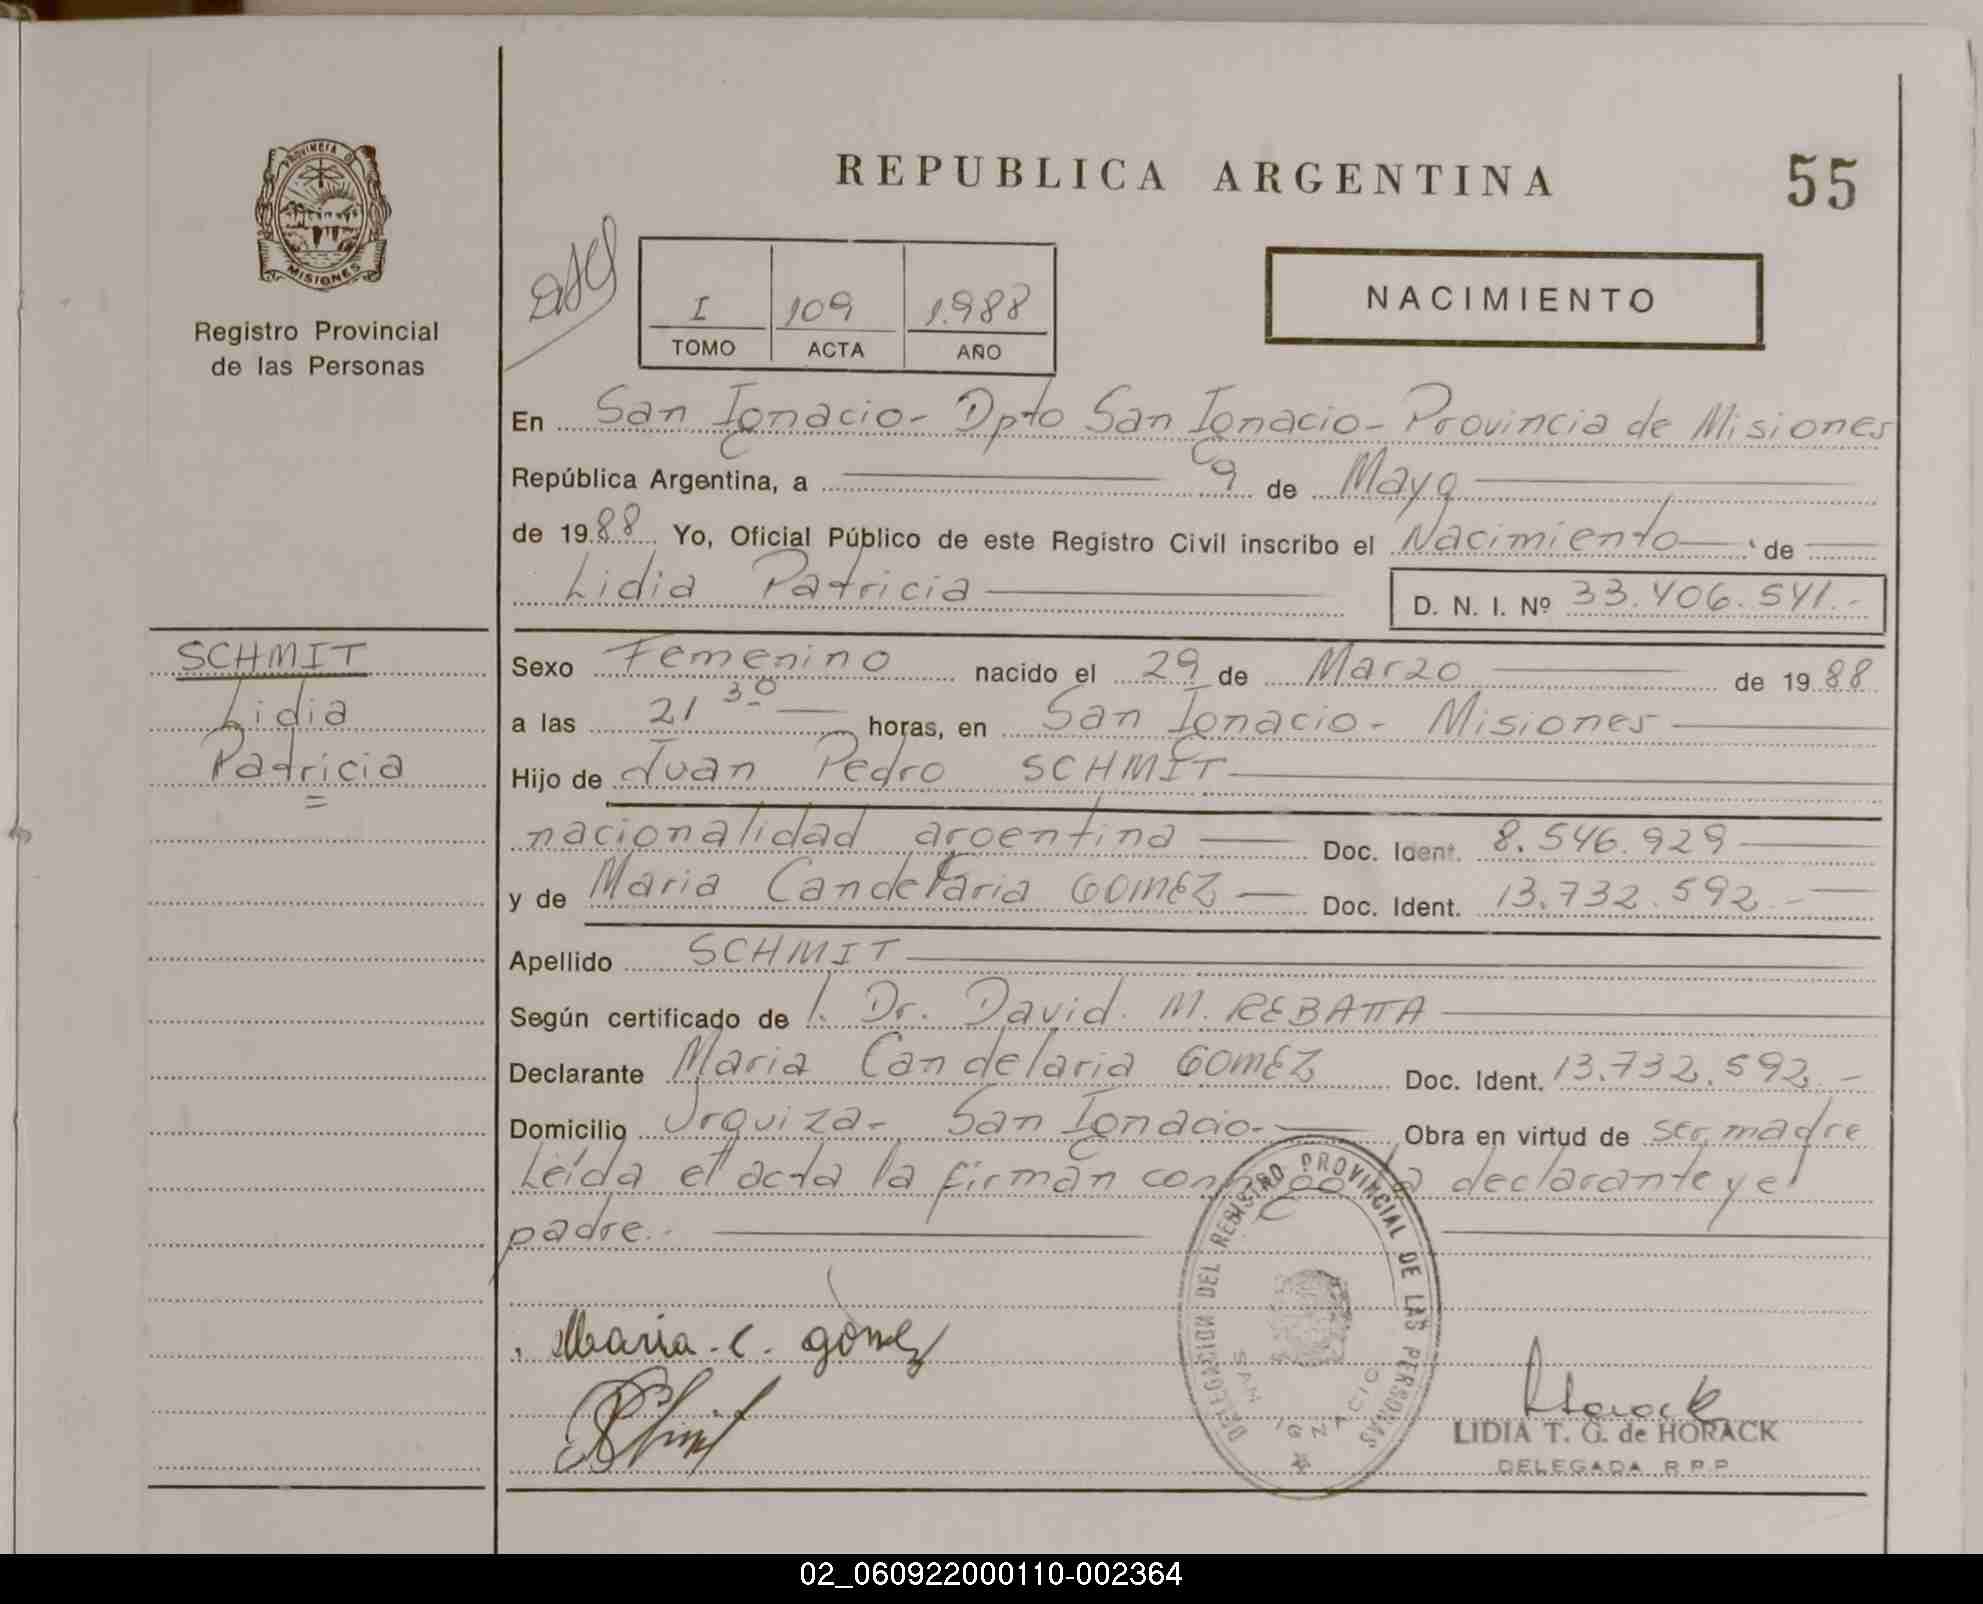 REPUBLICA ARGENTINA
55
PROVINCIA D
MISIONES
Registro Provincial
de las Personas
I 109 1.988
TOMO ACTA AÑO
NACIMIENTO
En San Ignacio - Dpto San Ignacio - Provincia de Misiones
República Argentina, a 9 de Mayo
de 1988 Yo, Oficial Público de este Registro Civil inscribo el Nacimiento de
Lidia Patricia D. N. I. Nº 33.406.541.-
SCHMIT
Lidia
Patricia
=
Sexo Femenino nacido el 29 de Marzo de 1988
a las 21 30 horas, en San Ignacio - Misiones
Hijo de Juan Pedro SCHMIT
nacionalidad argentina Doc. Ident. 8.546.929
y de Maria Candelaria GOMEZ Doc. Ident. 13.732.592.-
Apellido SCHMIT
Según certificado de l. Dr. David. M. REBATTA
Declarante Maria Candelaria GOMEZ Doc. Ident. 13.732.592.-
Domicilio Urquiza - San Ignacio.- Obra en virtud de ser madre
Leída el acta la firman conmigo la declarante y el
padre.-
Maria. C. gomez
DELEGACION DEL REGISTRO PROVINCIAL DE LAS PERSONAS
SAN IGNACIO
Horack
LIDIA T. G. de HORACK
DELEGADA R.P.P.
02_060922000110-002364